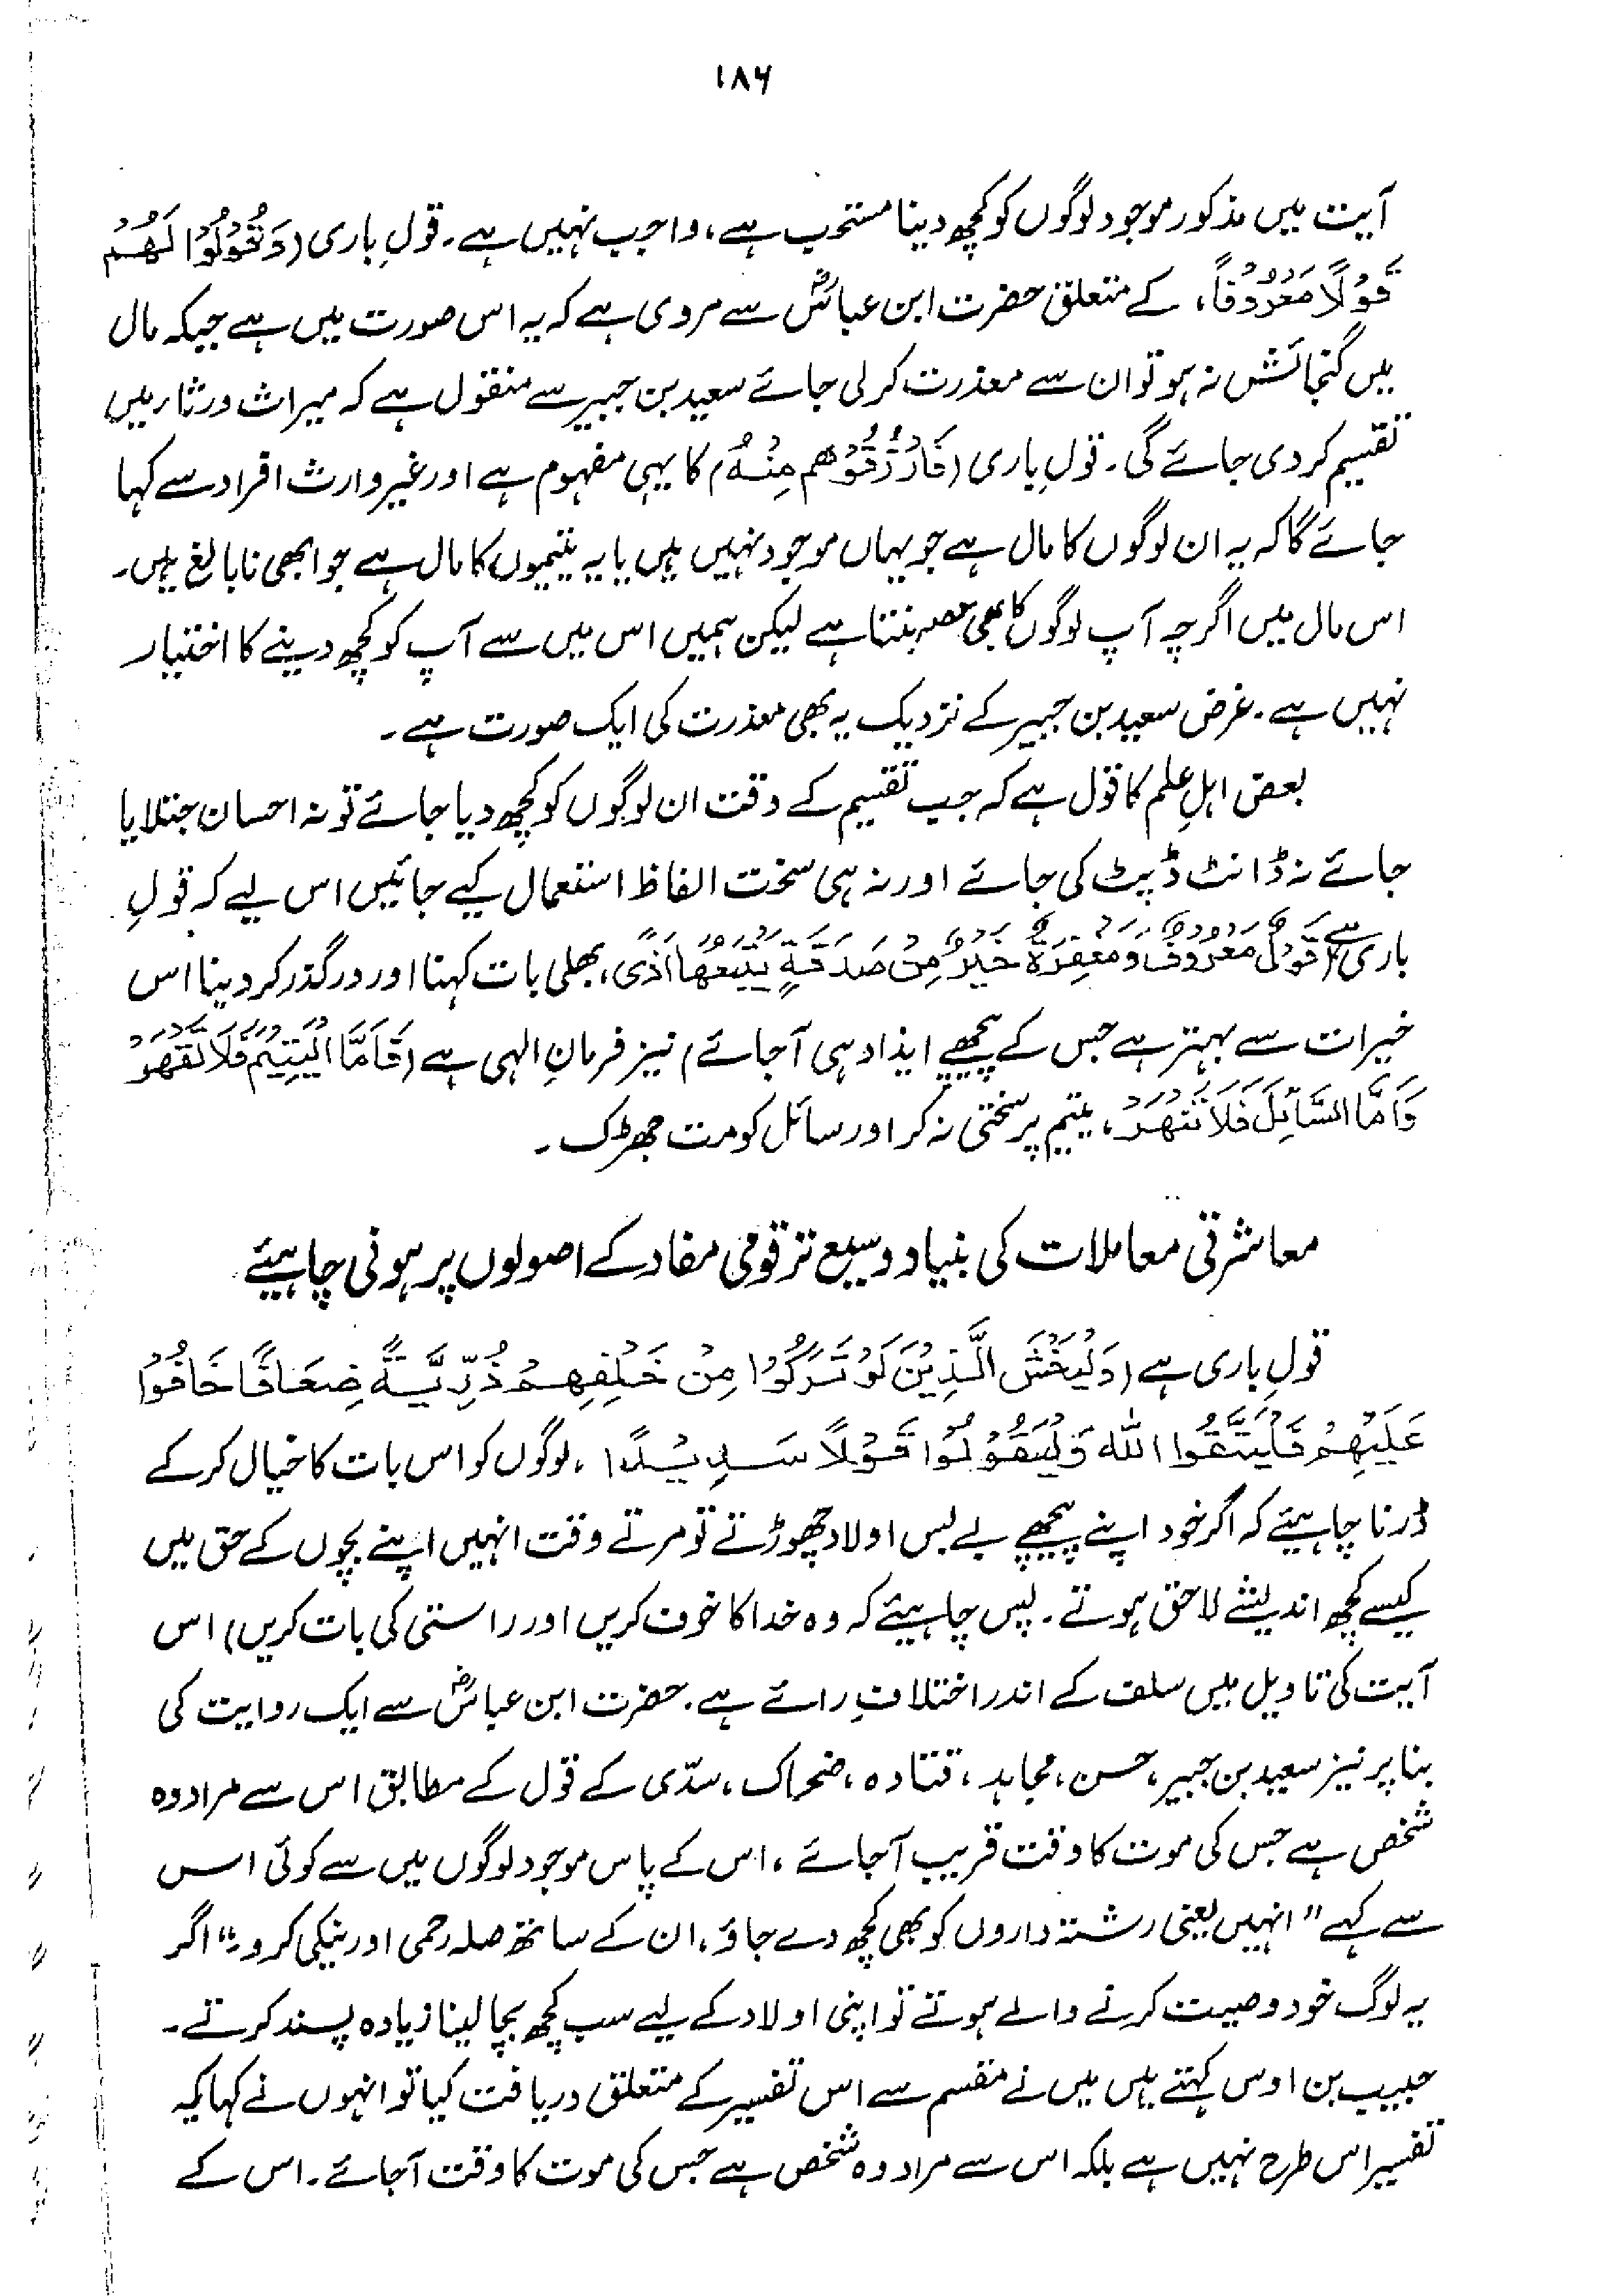 ۱۸۶
آیت میں مذکور موجود لوگوں کو کچھ دینا مستحب ہے، واجب نہیں ہے۔ قولِ باری (وَقُوْلُوْا لَهُمْ
قَوْلًا مَعْرُوْفًا، کے متعلق حضرت ابن عباسؓ سے مروی ہے کہ یہ اس صورت میں ہے جبکہ مال
میں گنجائش نہ ہو تو ان سے معذرت کر لی جائے سعید بن جبیر سے منقول ہے کہ میراث ورثاء میں
تقسیم کر دی جائے گی۔ قولِ باری (فَارْزُقُوْهُم مِنْهُ) کا یہی مفہوم ہے اور غیر وارث افراد سے کہا
جائے گا کہ یہ ان لوگوں کا مال ہے جو یہاں موجود نہیں ہیں یا یہ یتیموں کا مال ہے جو ابھی نابالغ ہیں۔
اس مال میں اگرچہ آپ لوگوں کا بھی حصہ بنتا ہے لیکن ہمیں اس میں سے آپ کو کچھ دینے کا اختیار
نہیں ہے۔ غرض سعید بن جبیر کے نزدیک یہ بھی معذرت کی ایک صورت ہے۔
بعض اہلِ علم کا قول ہے کہ جب تقسیم کے وقت ان لوگوں کو کچھ دیا جائے تو نہ احسان جتلایا
جائے نہ ڈانٹ ڈپٹ کی جائے اور نہ ہی سخت الفاظ استعمال کیے جائیں اس لیے کہ قولِ
باری ہے (قَوْلٌ مَعْرُوْفٌ وَمَغْفِرَةٌ خَيْرٌ مِنْ صَدَقَةٍ يَتْبَعُهَا اَذًى، بھلی بات کہنا اور درگذر کر دینا اس
خیرات سے بہتر ہے جس کے پیچھے ایذا دہی آجائے) نیز فرمانِ الہی ہے (فَاَمَّا الْيَتِيْمَ فَلَا تَقْهَرْ
وَاَمَّا السَّآئِلَ فَلَا تَنْهَرْ، یتیم پر سختی نہ کر اور سائل کو مت جھڑک۔
معاشرتی معاملات کی بنیاد وسیع تر قومی مفاد کے اصولوں پر ہونی چاہیئے
قولِ باری ہے (وَلْيَخْشَ الَّذِيْنَ لَوْ تَرَكُوْا مِنْ خَلْفِهِمْ ذُرِّيَّةً ضِعَافًا خَافُوْا
عَلَيْهِمْ فَلْيَتَّقُوا اللّٰهَ وَلْيَقُوْلُوْا قَوْلًا سَدِيْدًا، لوگوں کو اس بات کا خیال کر کے
ڈرنا چاہیئے کہ اگر خود اپنے پیچھے بے بس اولاد چھوڑتے تو مرتے وقت انہیں اپنے بچوں کے حق میں
کیسے کچھ اندیشے لاحق ہوتے۔ پس چاہیئے کہ وہ خدا کا خوف کریں اور راستی کی بات کریں) اس
آیت کی تاویل میں سلف کے اندر اختلافِ رائے ہے۔ حضرت ابن عباسؓ سے ایک روایت کی
بنا پر نیز سعید بن جبیر، حسن، مجاہد، قتادہ، ضحاک، سدّی کے قول کے مطابق اس سے مراد وہ
شخص ہے جس کی موت کا وقت قریب آجائے، اس کے پاس موجود لوگوں میں سے کوئی اس
سے کہے "انہیں یعنی رشتہ داروں کو بھی کچھ دے جاؤ، ان کے ساتھ صلہ رحمی اور نیکی کرو۔" اگر
یہ لوگ خود وصیت کرنے والے ہوتے تو اپنی اولاد کے لیے سب کچھ بچا لینا زیادہ پسند کرتے۔
حبیب بن اوس کہتے ہیں میں نے مقسم سے اس تفسیر کے متعلق دریافت کیا تو انہوں نے کہا کہ
تفسیر اس طرح نہیں ہے بلکہ اس سے مراد وہ شخص ہے جس کی موت کا وقت آجائے۔ اس کے